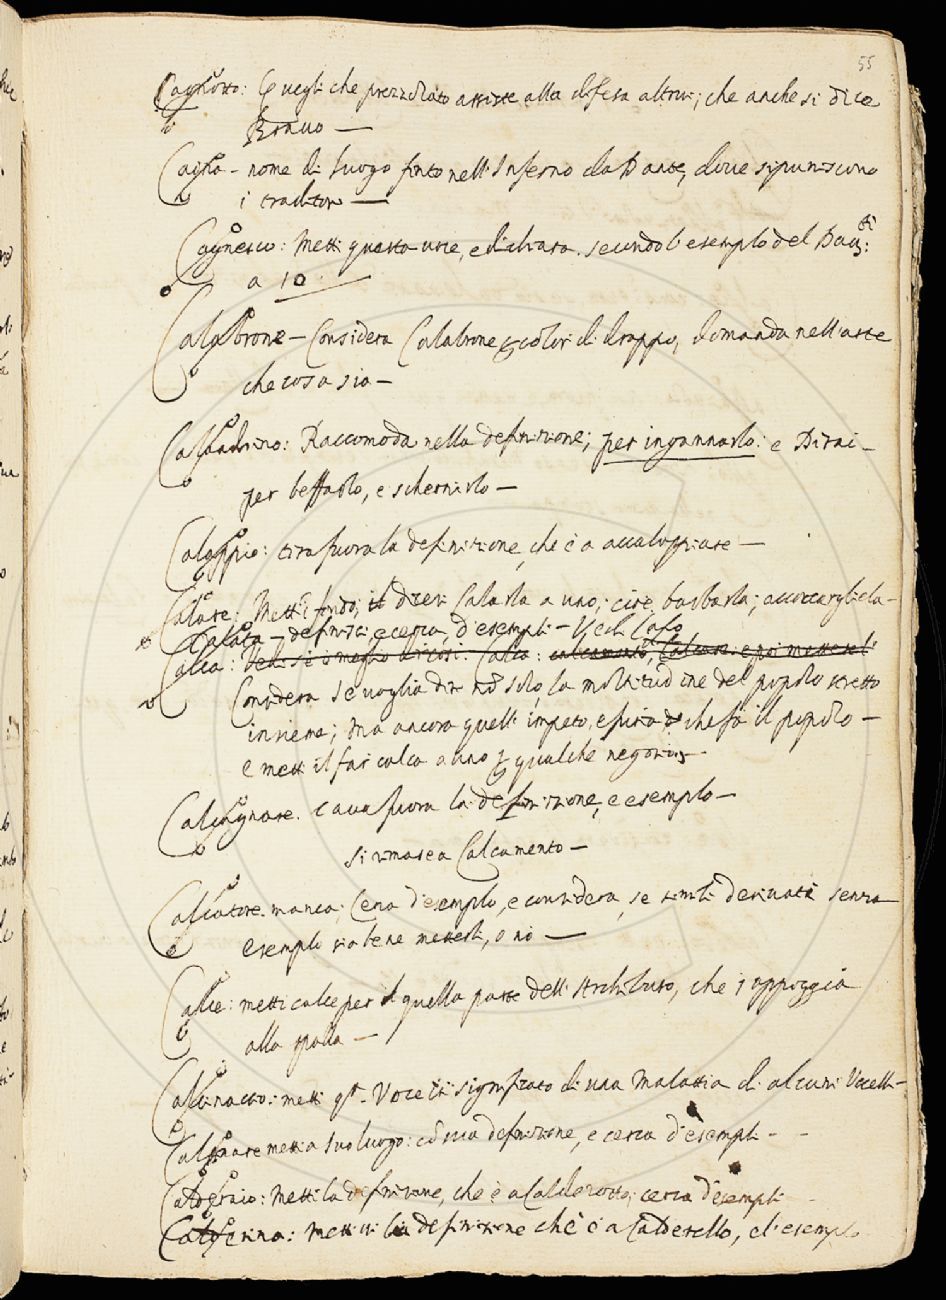 55
Cagnotto: Quegli che prezzolato assiste alla difesa altrui; che anche si dice
Bravo —
Caina - nome di luogo finto nell'Inferno da Dante, dove si puniscono
i traditori —
Cagnesco: Metti questa voce, e dichiara. secondo l'esempio del Dav:
a 10
Calabrone — Considera Calabrone color di drappo, domanda nell'arte
che cosa sia —
Calandrino: Raccomoda nella definizione; per ingannarlo: e Dirai —
per beffarlo, e schernirlo —
Caloppio: tira fuora la definizione che è a accaloppiare —
Calare: Metti in fondo; il dicesi Calarla a uno; cioè, barbarla; accoccargliela —
Calata - definisci, e cerca d'esempli - Vedi Calo
Calca: Calca: calcamento,
Considera se voglia dir non solo, la moltitudine del popolo stretto
insieme; ma ancora quell'impeto, e furia che fa il popolo —
e metti il far calca a uno per qualche negozio.
Calcagnare. cava fuora la definizione, e esempio —
si rimase a Calcamento —
Calcatore. manca; Cerca d'esemplo, e considera, se simili derivati senza
esemplo sia bene mettersi, o no —
Calce: metti calce per quella parte dell'Archibuso, che s'appoggia
alla spalla —
Calcinaccio: metti questa Voce in significato di una Malattia di alcuni Uccelli —
metti a suo luogo: con sua definizione, e cerca d'esempli - -
Metti la definizione, che è a Calderotto; cerca d'esempli
Calderina: Metti la definizione che è a Calderello, e l'esemplo